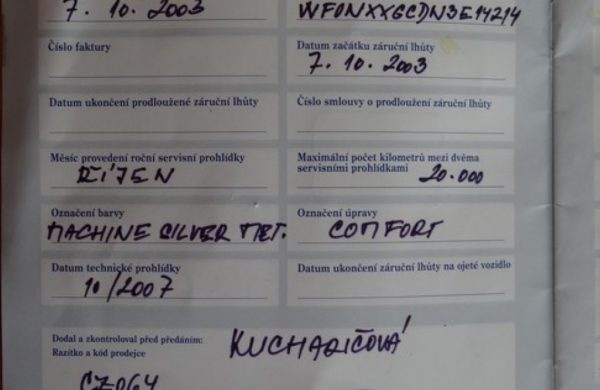 7. 10. 2003 WF0NXXGCDN3E14214
Číslo faktury
Datum začátku záruční lhůty
7. 10. 2003
Datum ukončení prodloužené záruční lhůty
Číslo smlouvy o prodloužení záruční lhůty
Měsíc provedení roční servisní prohlídky
ŘÍJEN
Maximální počet kilometrů mezi dvěma
servisními prohlídkami 20.000
Označení barvy
MACHINE SILVER MET.
Označení úpravy
COMFORT
Datum technické prohlídky
10/2007
Datum ukončení záruční lhůty na ojeté vozidlo
Dodal a zkontroloval před předáním:
Razítko a kód prodejce
KUCHAŘIČOVÁ
CZ064